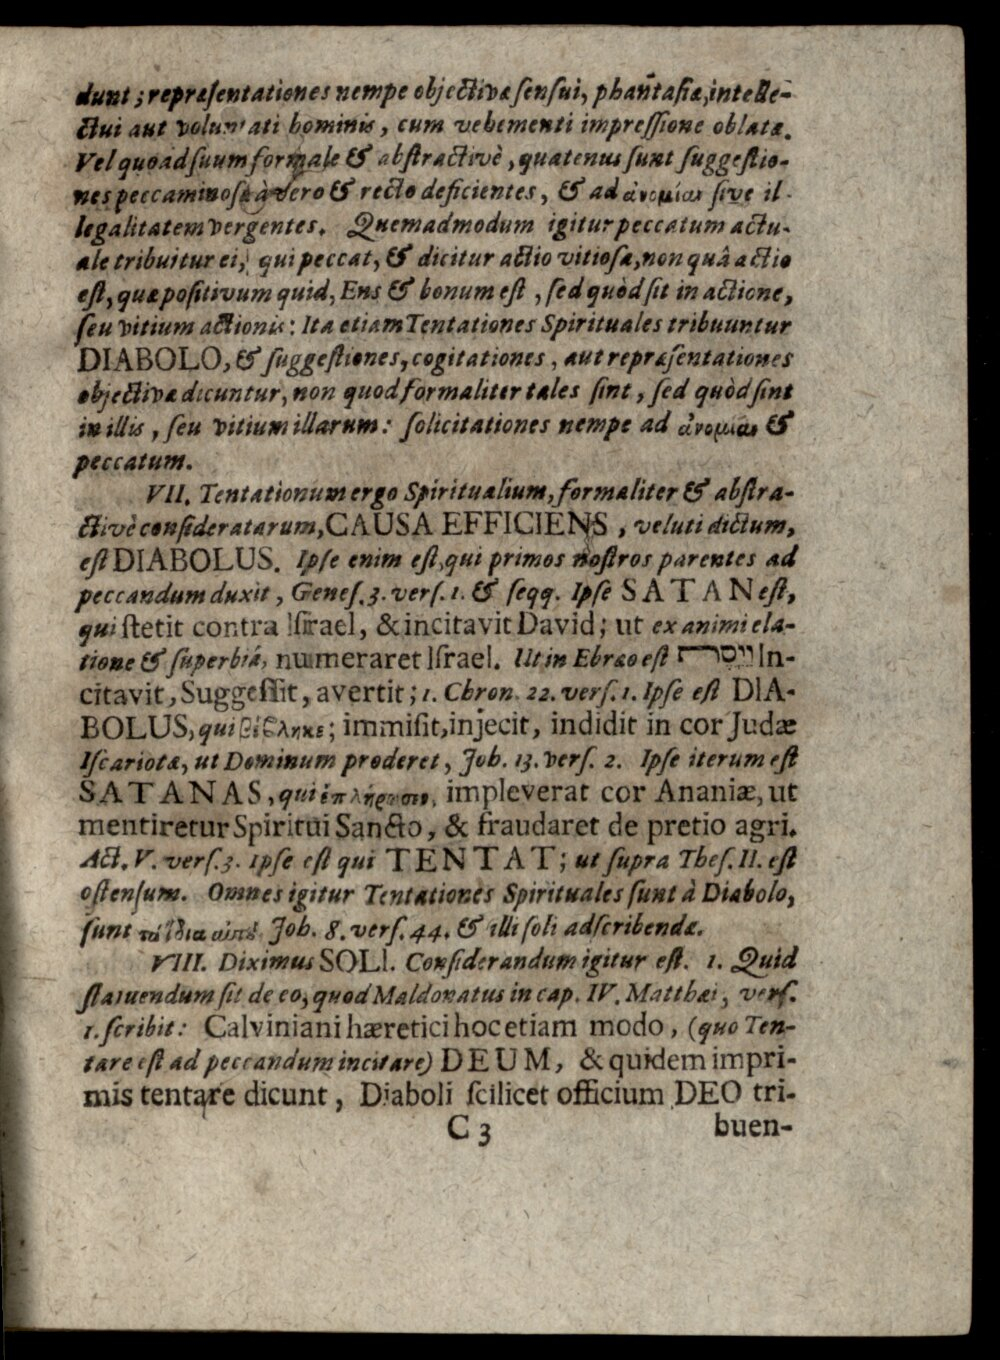 dunt; repræsentationes nempe objectivæ sensui, phantasiæ, intelle-
ctui aut voluntati hominis, cum vehementi impressione oblatæ.
Vel quoad suum formale & abstractivè, quatenus sunt suggestio-
nes peccaminosæ à vero & recto deficientes, & ad ἀνομίαν sive il-
legalitatem vergentes. Quemadmodum igitur peccatum actu-
ale tribuitur ei, qui peccat, & dicitur actio vitiosa, non quâ actio
est, quæ positivum quid, Ens & bonum est, sed quòd sit in actione,
seu vitium actionis: Ita etiam Tentationes Spirituales tribuuntur
DIABOLO, & suggestiones, cogitationes, aut repræsentationes
objectivæ dicuntur, non quod formaliter tales sint, sed quòd sint
in illis, seu vitium illarum: solicitationes nempe ad ἀνομίαν &
peccatum.
VII. Tentationum ergo Spiritualium, formaliter & abstra-
ctivè consideratarum, CAUSA EFFICIENS, veluti dictum,
est DIABOLUS. Ipse enim est, qui primos nostros parentes ad
peccandum duxit, Genes. 3. vers. 1. & seqq. Ipse SATAN est,
qui stetit contra Israel, & incitavit David; ut ex animi ela-
tione & superbiâ, numeraret Israel. Ut in Ebræo est In-
citavit, Suggessit, avertit; 1. Chron. 22. vers. 1. Ipse est DIA-
BOLUS, qui βέβληκε; immisit, injecit, indidit in cor Judæ
Iscariotæ, ut Dominum proderet, Joh. 13. vers. 2. Ipse iterum est
SATANAS, qui ἐπλήρωσεν, impleverat cor Ananiæ, ut
mentiretur Spiritui Sancto, & fraudaret de pretio agri.
Act. V. vers. 3. Ipse est qui TENTAT; ut supra Thes. II. est
ostensum. Omnes igitur Tentationes Spirituales sunt à Diabolo,
sunt τὰ ἴδια αὐτοῦ Joh. 8. vers. 44. & illi soli adscribendæ.
VIII. Diximus SOLI. Considerandum igitur est. 1. Quid
statuendum sit de eo, quod Maldonatus in cap. IV. Matthæi, vers.
1. scribit: Calviniani hæretici hoc etiam modo, (quo Ten-
tare est ad peccandum incitare) DEUM, & quidem impri-
mis tentare dicunt, Diaboli scilicet officium DEO tri-
C 3 buen-